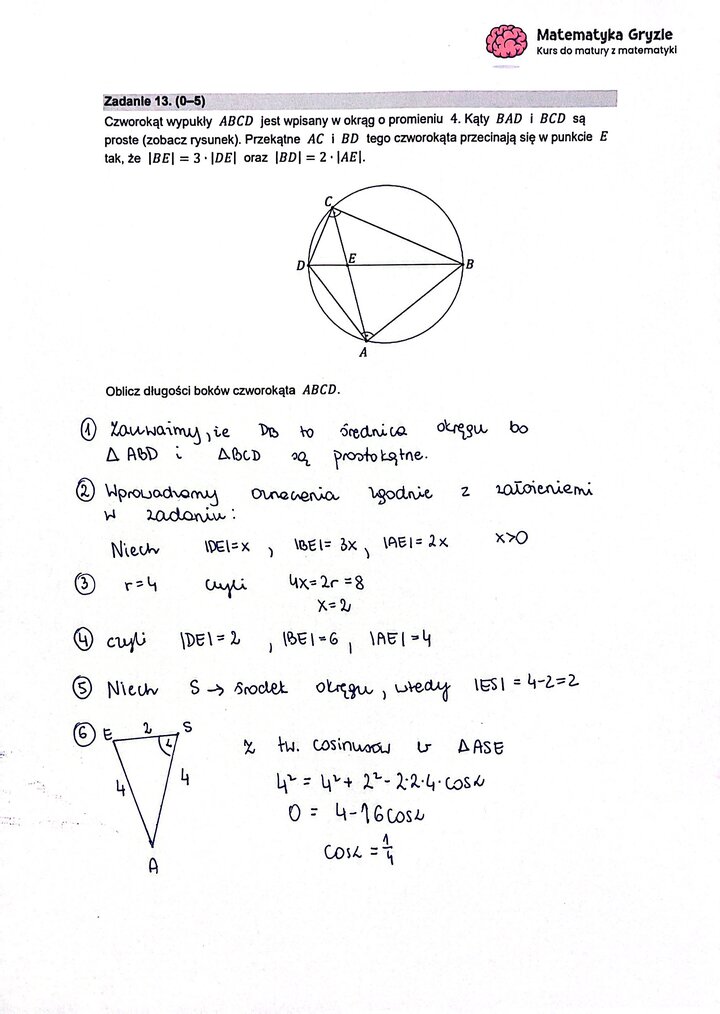 Matematyka Gryzie
Kurs do matury z matematyki
Zadanie 13. (0–5)
Czworokąt wypukły ABCD jest wpisany w okrąg o promieniu 4. Kąty BAD i BCD są
proste (zobacz rysunek). Przekątne AC i BD tego czworokąta przecinają się w punkcie E
tak, że |BE| = 3 · |DE| oraz |BD| = 2 · |AE|.
C
D E B
A
Oblicz długości boków czworokąta ABCD.
① Zauważmy, że DB to średnica okręgu bo
△ ABD i △BCD są prostokątne.
② Wprowadzamy oznaczenia zgodnie z założeniami
w zadaniu:
Niech |DE|=x , |BE|= 3x, |AE|= 2x x>0
③ r=4 czyli 4x=2r=8
x=2
④ czyli |DE|=2 , |BE|=6 , |AE|=4
⑤ Niech S → środek okręgu, wtedy |ES| = 4-2=2
⑥ E 2 S z tw. cosinusów w △ASE
α
4 4 4² = 4² + 2² - 2·2·4·cosα
0 = 4-16cosα
A cosα = 1/4